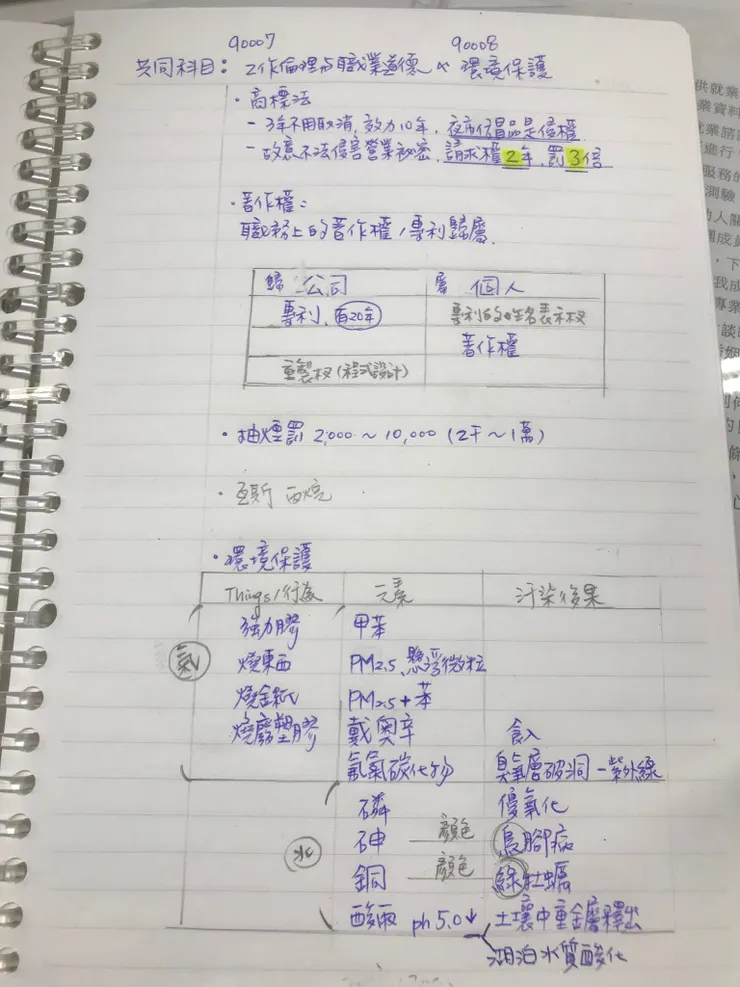 90007 90008
共同科目：工作倫理与職業道德 & 環境保護
·商標法
-3年不用取消，效力10年，夜市仿冒品是侵權
-故意不法侵害營業祕密，請求權2年，罰3倍
·著作權：
職務上的著作權/專利歸屬
歸 公司 屬 個人
專利，有20年 專利的姓名表示权
著作權
重製权(程式設計)
·抽煙罰 2,000～10,000 (2千～1萬)
·環境保護
Things/行為 元素 汙染後果
強力膠 甲苯
氣 燒東西 PM2.5、懸浮微粒
燒金紙 PM2.5+苯
燒廢塑膠 戴奧辛 食入
氟氯碳化物 臭氧層破洞-紫外線
磷 優氧化
水 砷 顏色 烏腳病
銅 顏色 綠牡蠣
酸雨 ph 5.0↓ 土壤中重金屬釋出
湖泊水質酸化
供就業
業資料